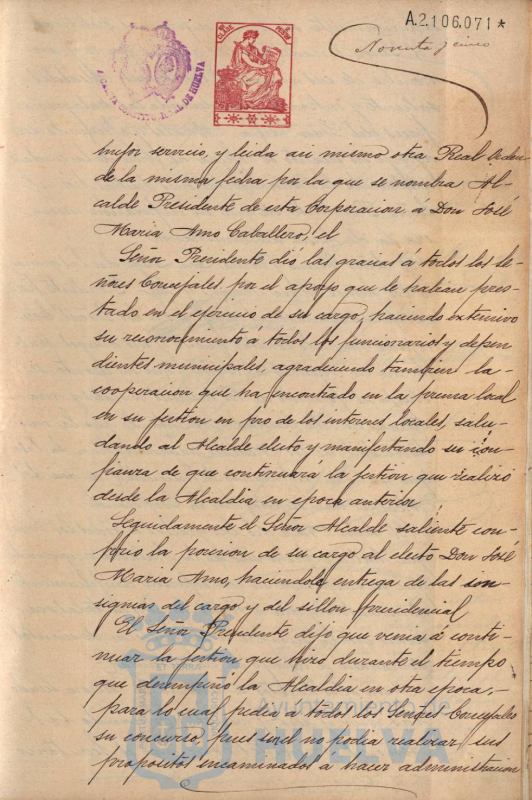 A.2.106.071*
Noventa y cinco
9ª CLASE
ALCALDIA CONSTITUCIONAL DE HUELVA
mejor servicio, y leida asi mismo otra Real Orden
de la misma fecha por la que se nombra Al-
calde Presidente de esta Corporacion á Don José
Maria Amo Caballero, el
Señor Presidente dió las gracias á todos los Se-
ñores Concejales por el apoyo que le habian pres-
tado en el ejercicio de su cargo, haciendo extensivo
su reconocimiento á todos los funcionarios y depen
dientes municipales, agradeciendo tambien la
cooperacion que ha encontrado en la prensa local
en su gestion en pro de los intereses locales, salu-
dando al Alcalde electo y manifestando su con-
fianza de que continuará la gestion que realizó
desde la Alcaldia en epoca anterior
Seguidamente el Señor Alcalde saliente con-
firió la posesion de su cargo al electo Don José
Maria Amo, haciendole entrega de las in-
signias del cargo y del sillon presidencial
El Señor Presidente dijo que venia á conti-
nuar la gestion que hizo durante el tiempo
que desempeñó la Alcaldia en otra epoca,-
para lo cual pedia á todos los Señores Concejales
su concurso, pues sin el no podia realizar sus
propositos encaminados a hacer administracion
Ayuntamiento de
HUELVA